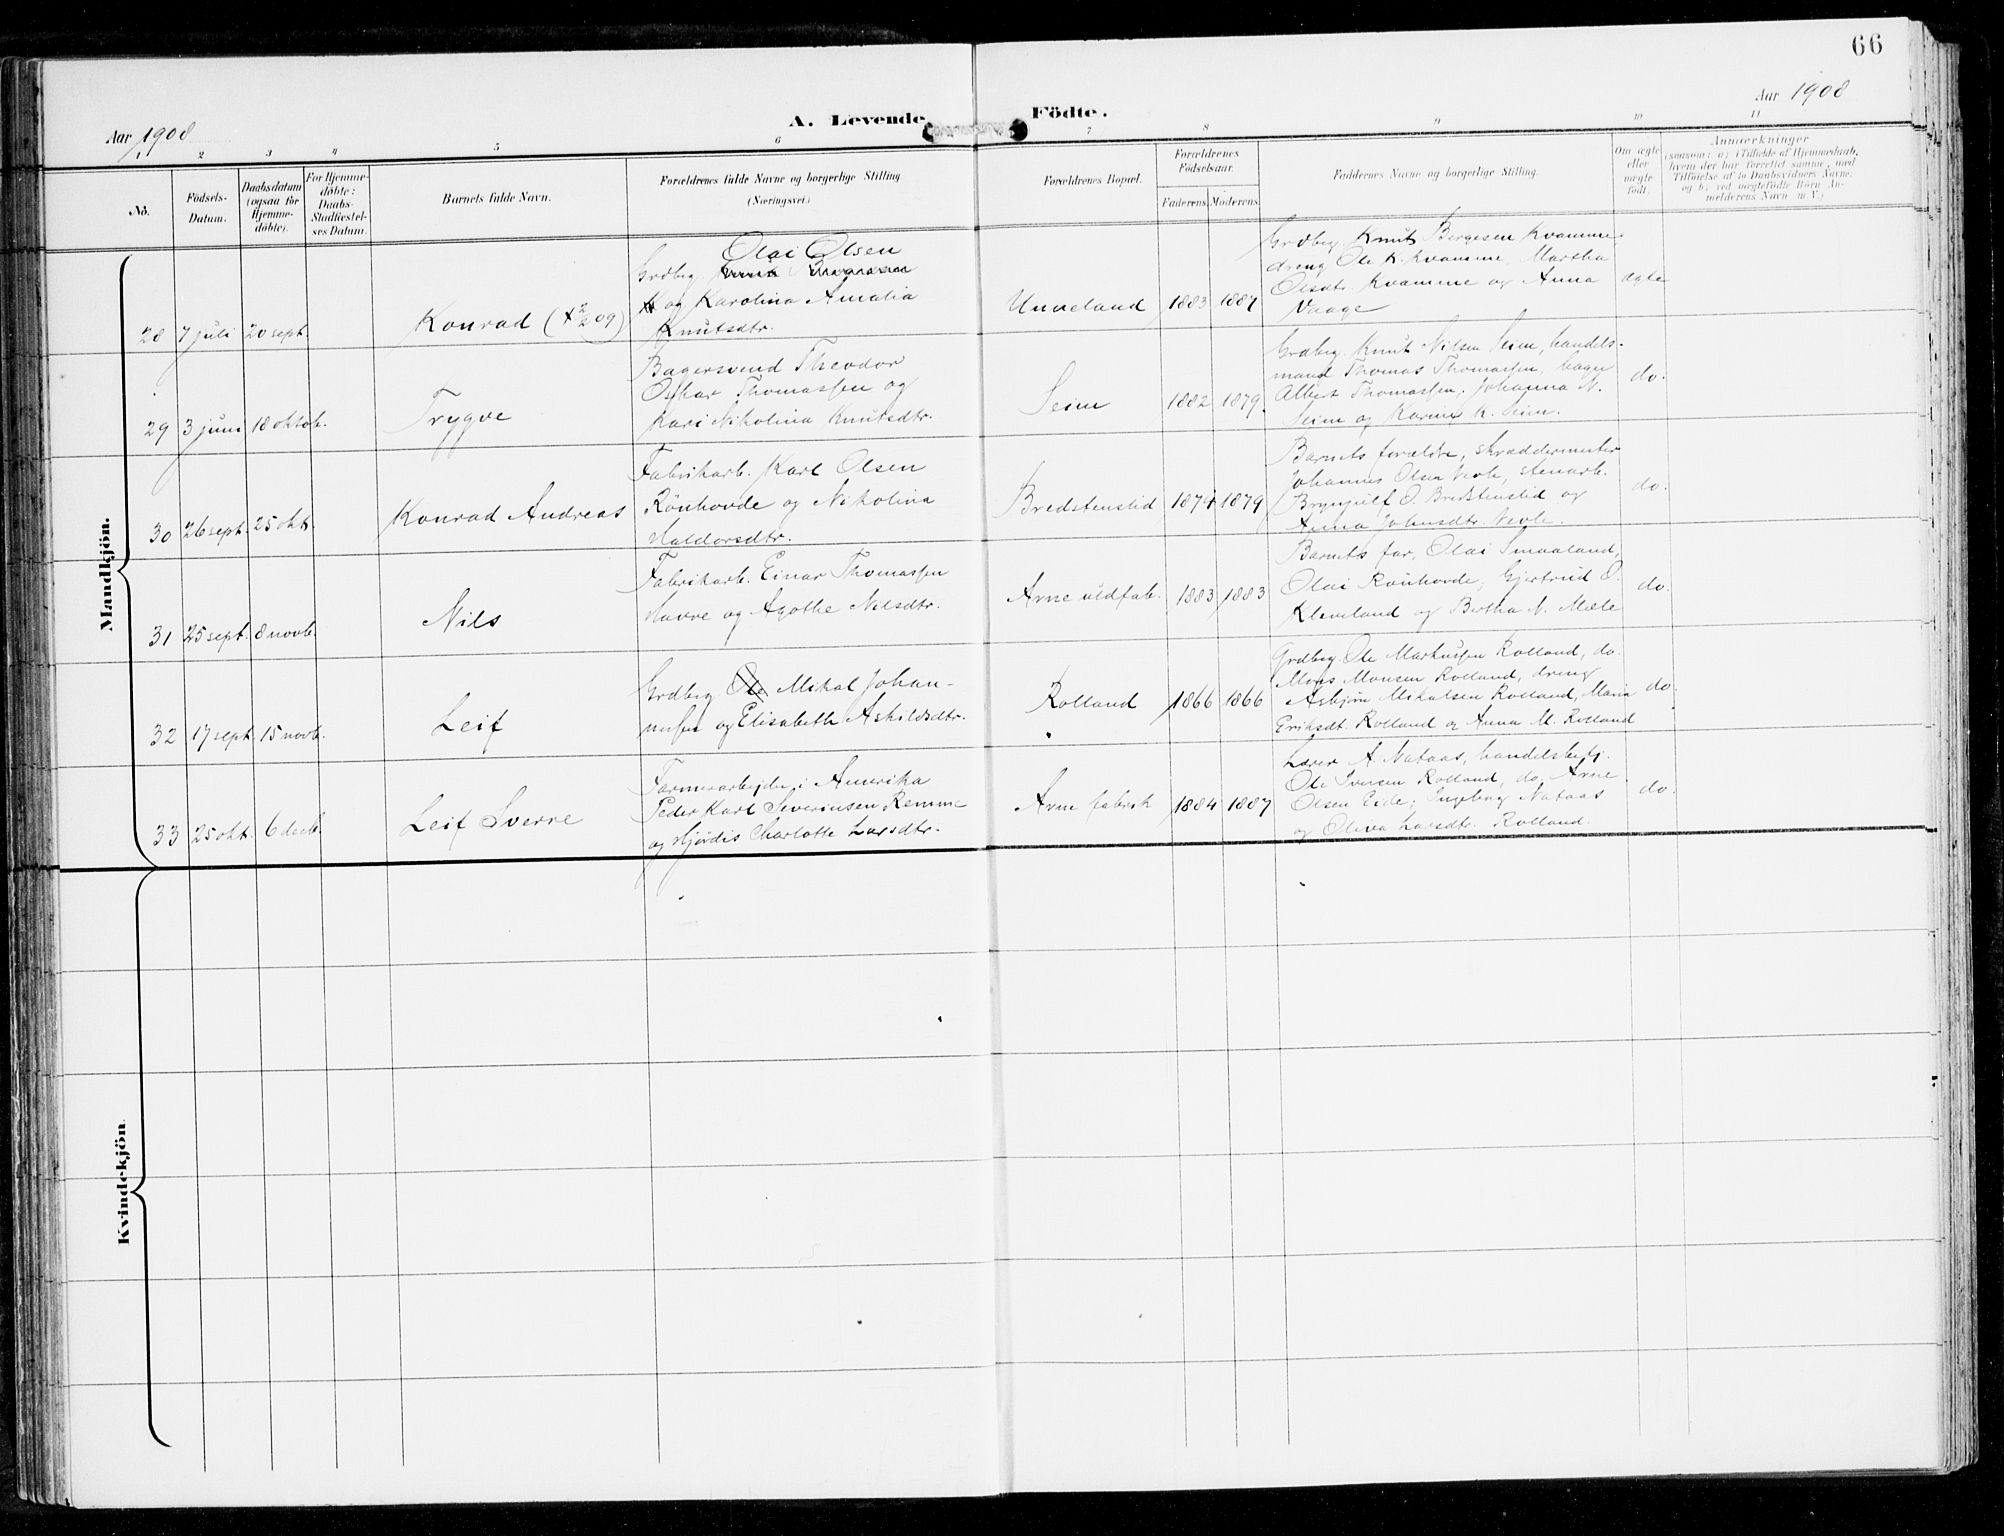 66
Aar 1908
A. Levende Födte.
Aar 1908
1 2 3 4 5 6 7 8 9 10 11
No.
Födsels-
Datum.
Daabsdatum
(ogsaa for
Hjemme-
döbte).
For Hjemme-
döbte:
Daabs-
Stadfæstel-
ses Datum.
Barnets fulde Navn.
Forældrenes fulde Navne og borgerlige Stilling
(Næringsvei.)
Forældrenes Bopæl.
Forældrenes
Födselsaar.
Faderens. Moderens.
Faddernes Navne og borgerlige Stilling.
Om ægte
eller
uægte
födt.
Anmærkninger
(saasom: a) i Tilfælde af Hjemmedaab,
hvem der har forrettet samme, med
Tilföielse af to Daabsvidners Navne,
og b) ved uægtefödte Börn An-
melderens Navn m. V.)
Mandkjön.
28 7 juli 20 sept.
Konrad (+ 2/2 09)
Olai Olsen
Grdbrg.
og Karolina Amalia
Knutsdtr.
Unneland 1883 1887
Grdbrg. Knut Børgesen Kvamme,
dreng Ole K. Kvamme, Martha
Olsdtr. Kvamme og Anna
Vaage
ægte
29 3 juni 18 oktob.
Trygve
Bagersvend Theodor
Oskar Thomassen og
Kari Nikolina Knutsdtr.
Seim 1882 1879.
Grdbrg. Knut Nilsen Seim, handels-
mand Thomas Thomassen, bager
Albert Thomassen, Johanna N.
Seim og Karine K. Seim.
do.
30 26 sept. 25 okt.
Konrad Andreas
Fabrikarb. Karl Olsen
Rønhovde og Nikolina
Haldorsdtr.
Bredstenslid 1874 1879
Barnets forældre, skræddermester
Johannes Olsen Vevle, stenarb.
Brynjulf O. Bredstenslid og
Anna Johnsdtr. Vevle.
do.
31 25 sept. 8 novb.
Nils
Fabrikarb. Einar Thomassen
Havre og Agothe Nilsdtr.
Arne uldfab. 1883 1883
Barnets far, Olai Smaaland,
Olai Rønhovde, Gjertrud O.
Kleveland og Bertha N. Mæle
do.
32 17 sept. 15 novb.
Leif
Grdbrg. Ole Mikal Johan-
nesen og Elisabeth Askildsdtr.
Rolland 1866 1866
Grdbrg. Ole Markussen Rolland, do.
Mons Monsen Rolland, dreng
Asbjørn Mikalsen Rolland, Maria
Eriksdt. Rolland og Anna M. Rolland
do.
33 25 okt. 6 decb.
Leif Sverre
Farmerarbejder i Amerika
Peder Karl Severinsen Remme
og Hjørdis Charlotte Larsdtr.
Arne fabrik 1884 1887
Lærer A. Nataas, handelsbetj.
Ole Iversen Rolland, do. Arne
Olsen Eide, Ingeborg Nataas
og Oliva Larsdtr. Rolland.
do.
Kvindekjön.